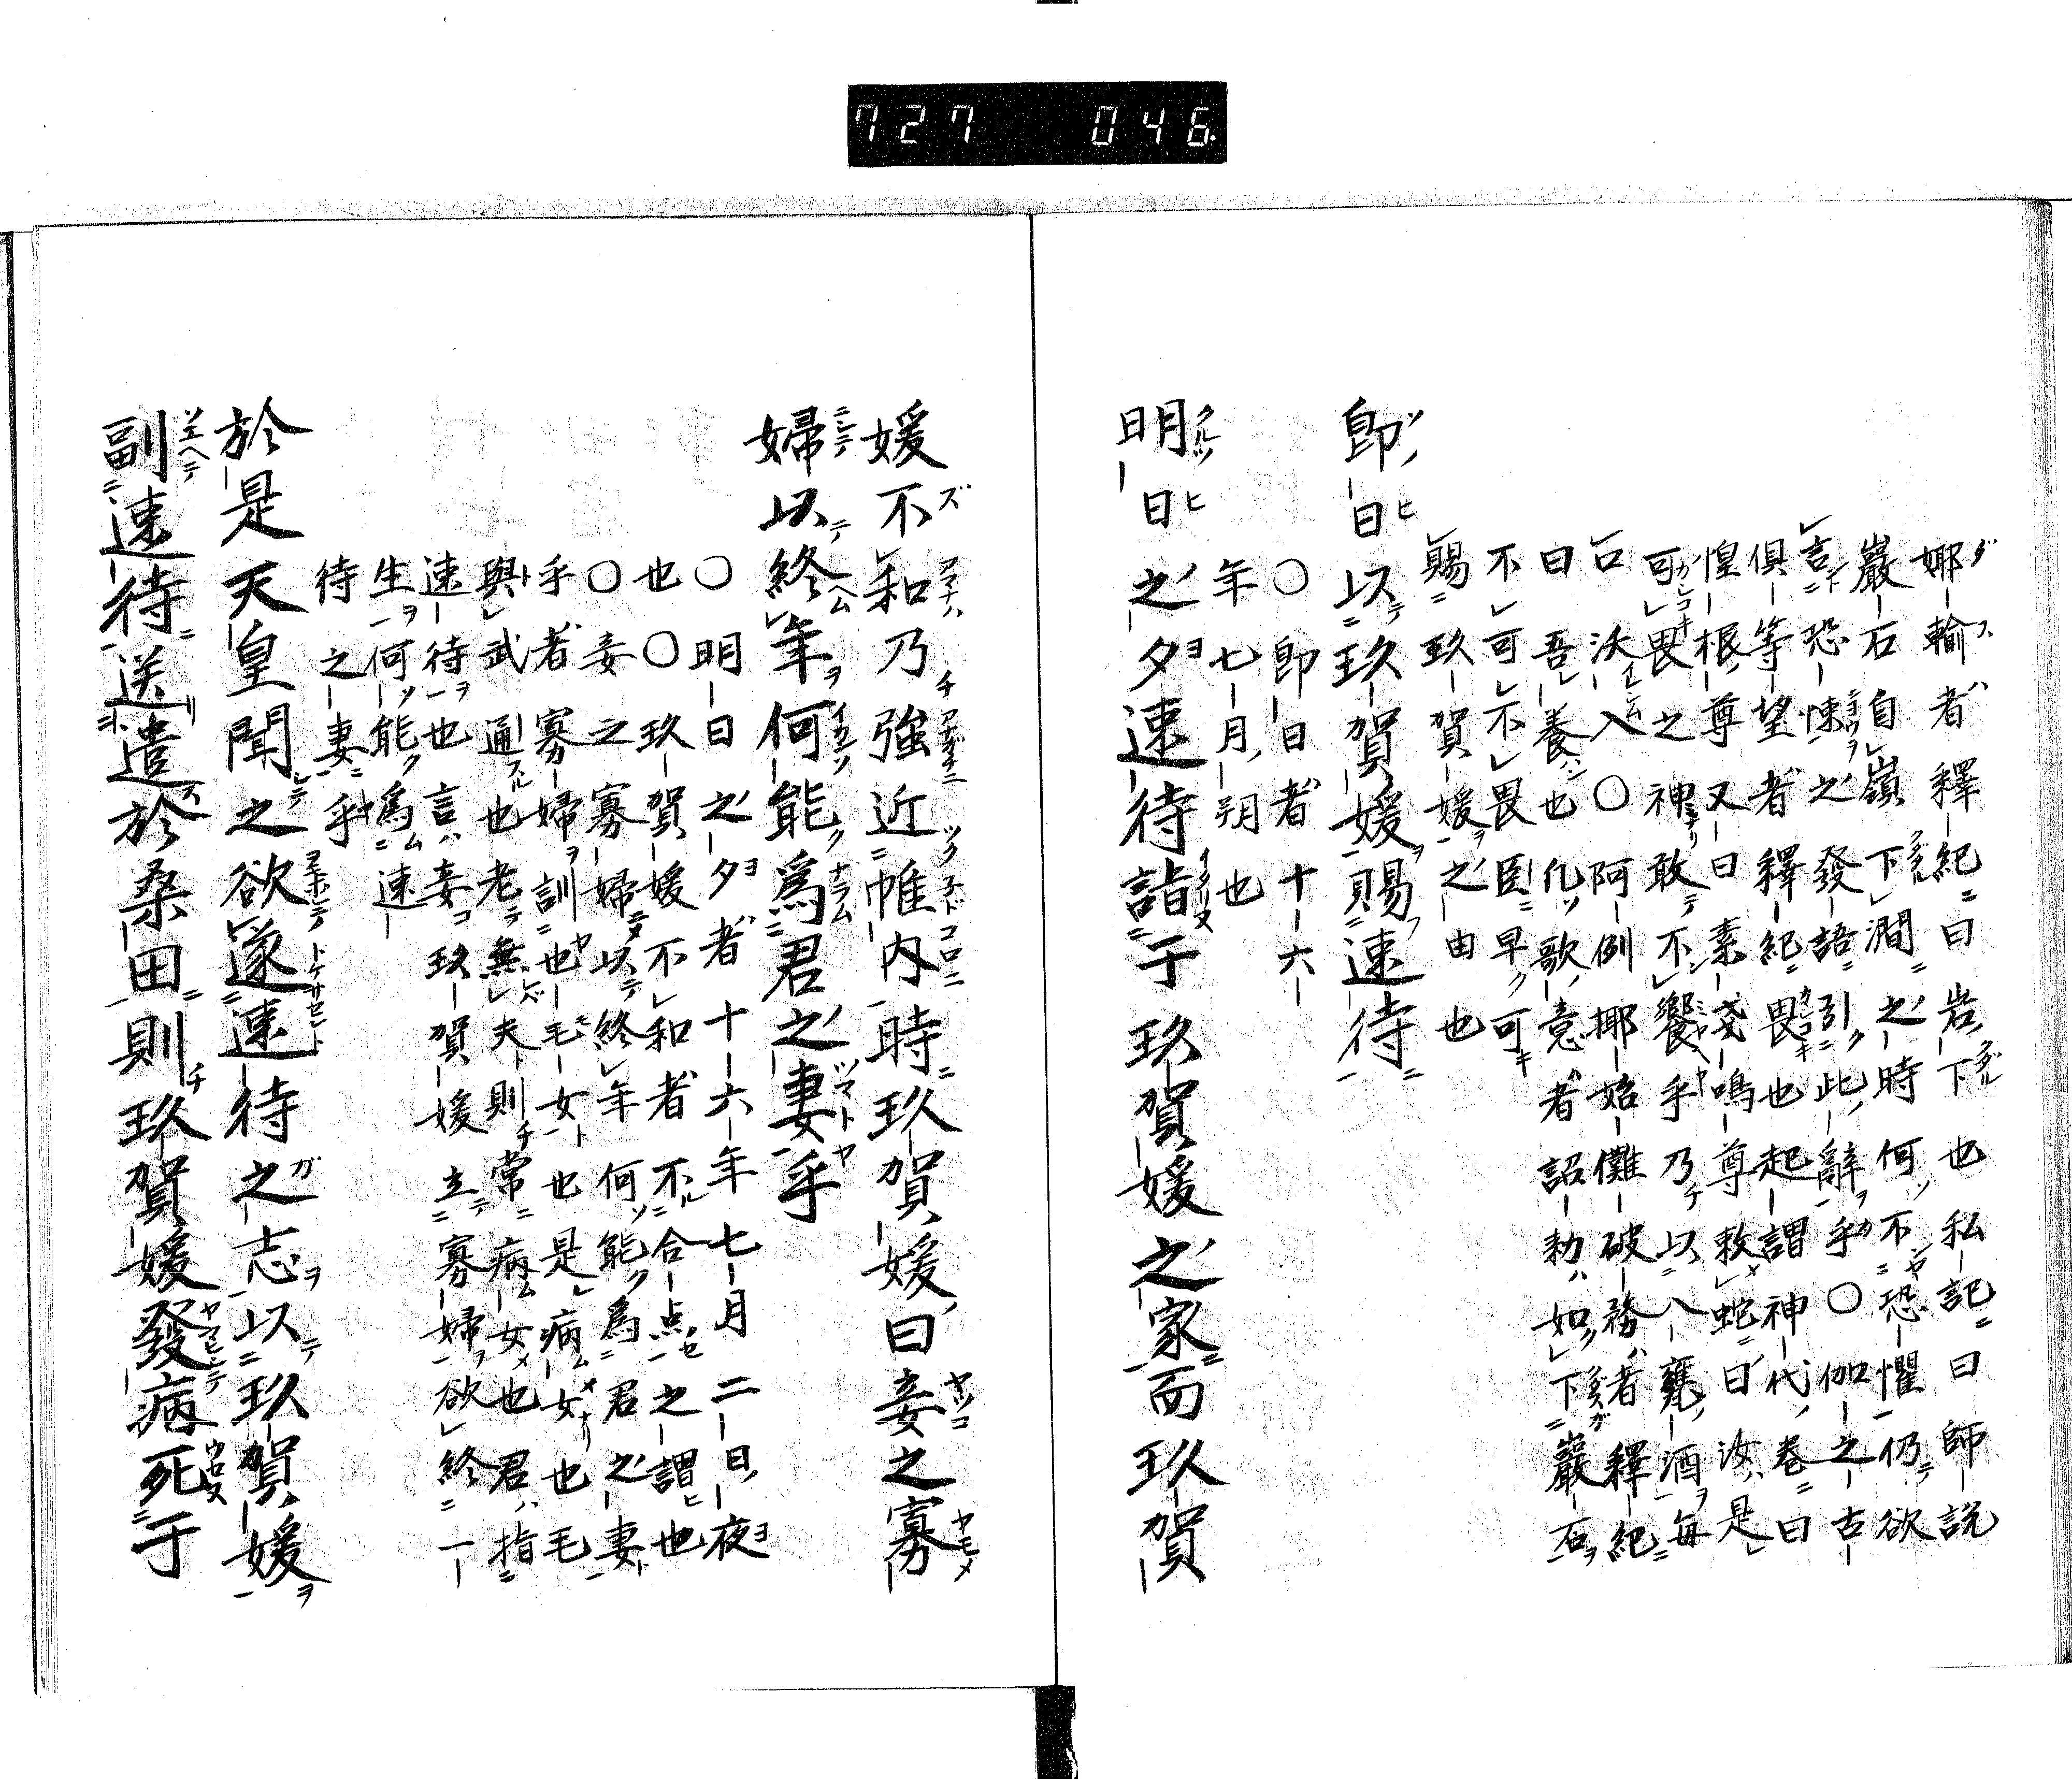 727 046
娜輸者釋紀曰岩下也私記曰師説
巖石自嶺下澗之時何不恐懼仍欲
言恐悚之發語引此辭乎〇伽之古
倶等望者釋紀畏也起謂神代卷曰
惶根尊又曰素戔嗚尊敕蛇曰汝是
可畏之神敢不饗乎乃以八甕酒毎
口沃入〇阿例揶始儺破務者釋紀
曰吾養也凡歌意者詔勅如下巖石
不可不畏臣早可
賜玖賀媛之由也
即日以玖賀媛賜速待
〇即日者十六
年七月朔也
明日之夕速待詣于玖賀媛之家而玖賀
媛不和乃強近帷内時玖賀媛曰妾之寡
婦以終年何能為君之妻乎
〇明日之夕者十六年七月二日夜
也〇玖賀媛不和者不合点之謂也
〇妾之寡婦以終年何能為君之妻
乎者寡婦訓也毛女也是病女也毛
與武通也老無夫則常病女也君指
速待也言妾玖賀媛立寡婦欲終一
生何能為速
待之妻乎
於是天皇聞之欲遂速待之志以玖賀媛
副速待送遣於桑田則玖賀媛發病死于